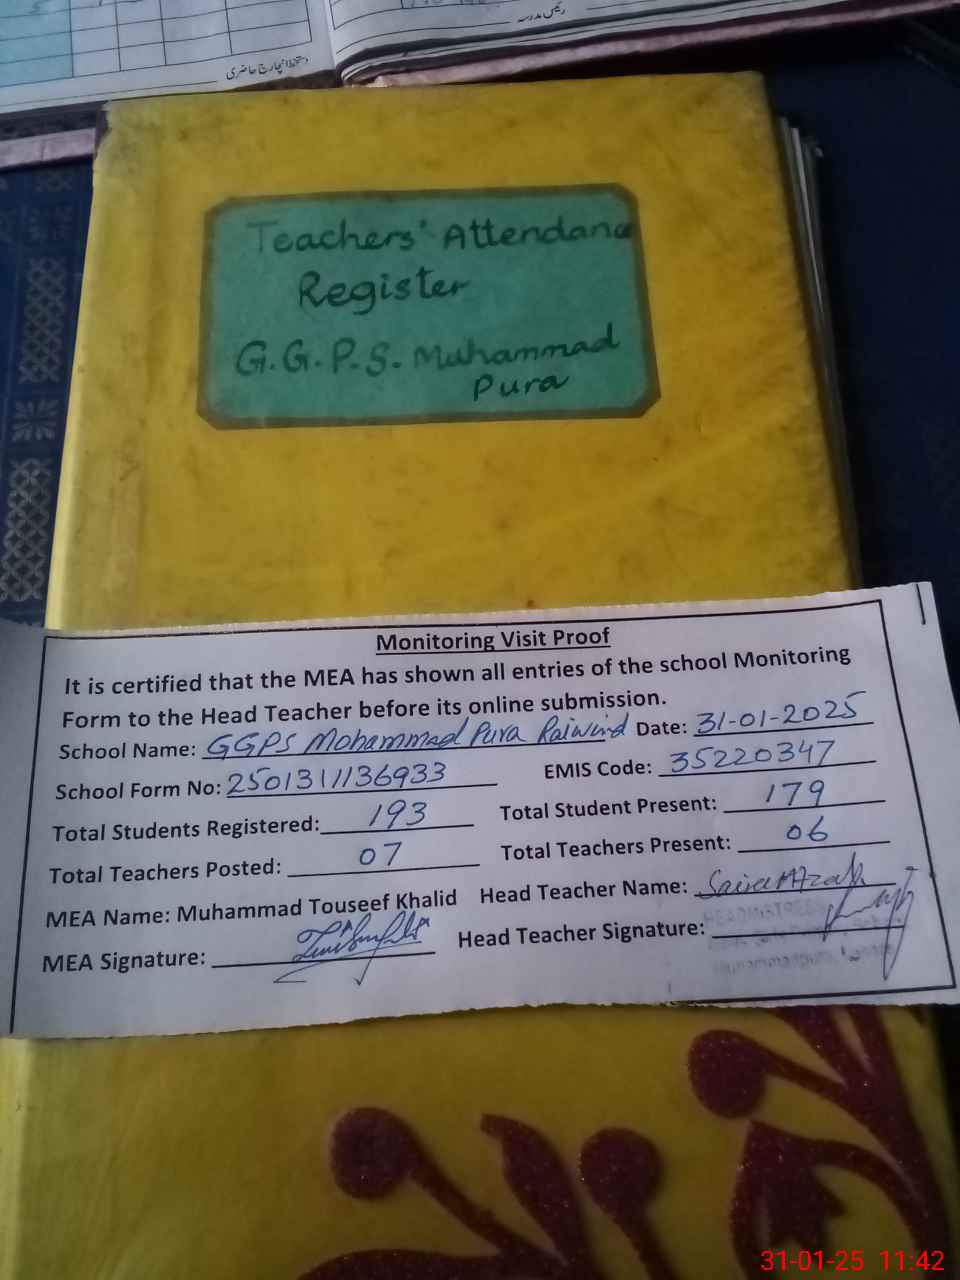 رئیس مدرسہ
دستخط انچارج حاضری
Teachers' Attendance
Register
G.G.P.S. Muhammad
Pura
Monitoring Visit Proof
It is certified that the MEA has shown all entries of the school Monitoring
Form to the Head Teacher before its online submission.
School Name: GGPS Mohammad Pura Raiwind Date: 31-01-2025
School Form No: 2501311136933 EMIS Code: 35220347
Total Students Registered: 193 Total Student Present: 179
Total Teachers Posted: 07 Total Teachers Present: 06
MEA Name: Muhammad Touseef Khalid Head Teacher Name: Saira
MEA Signature: Head Teacher Signature:
HEADMISTRESS
31-01-25 11:42